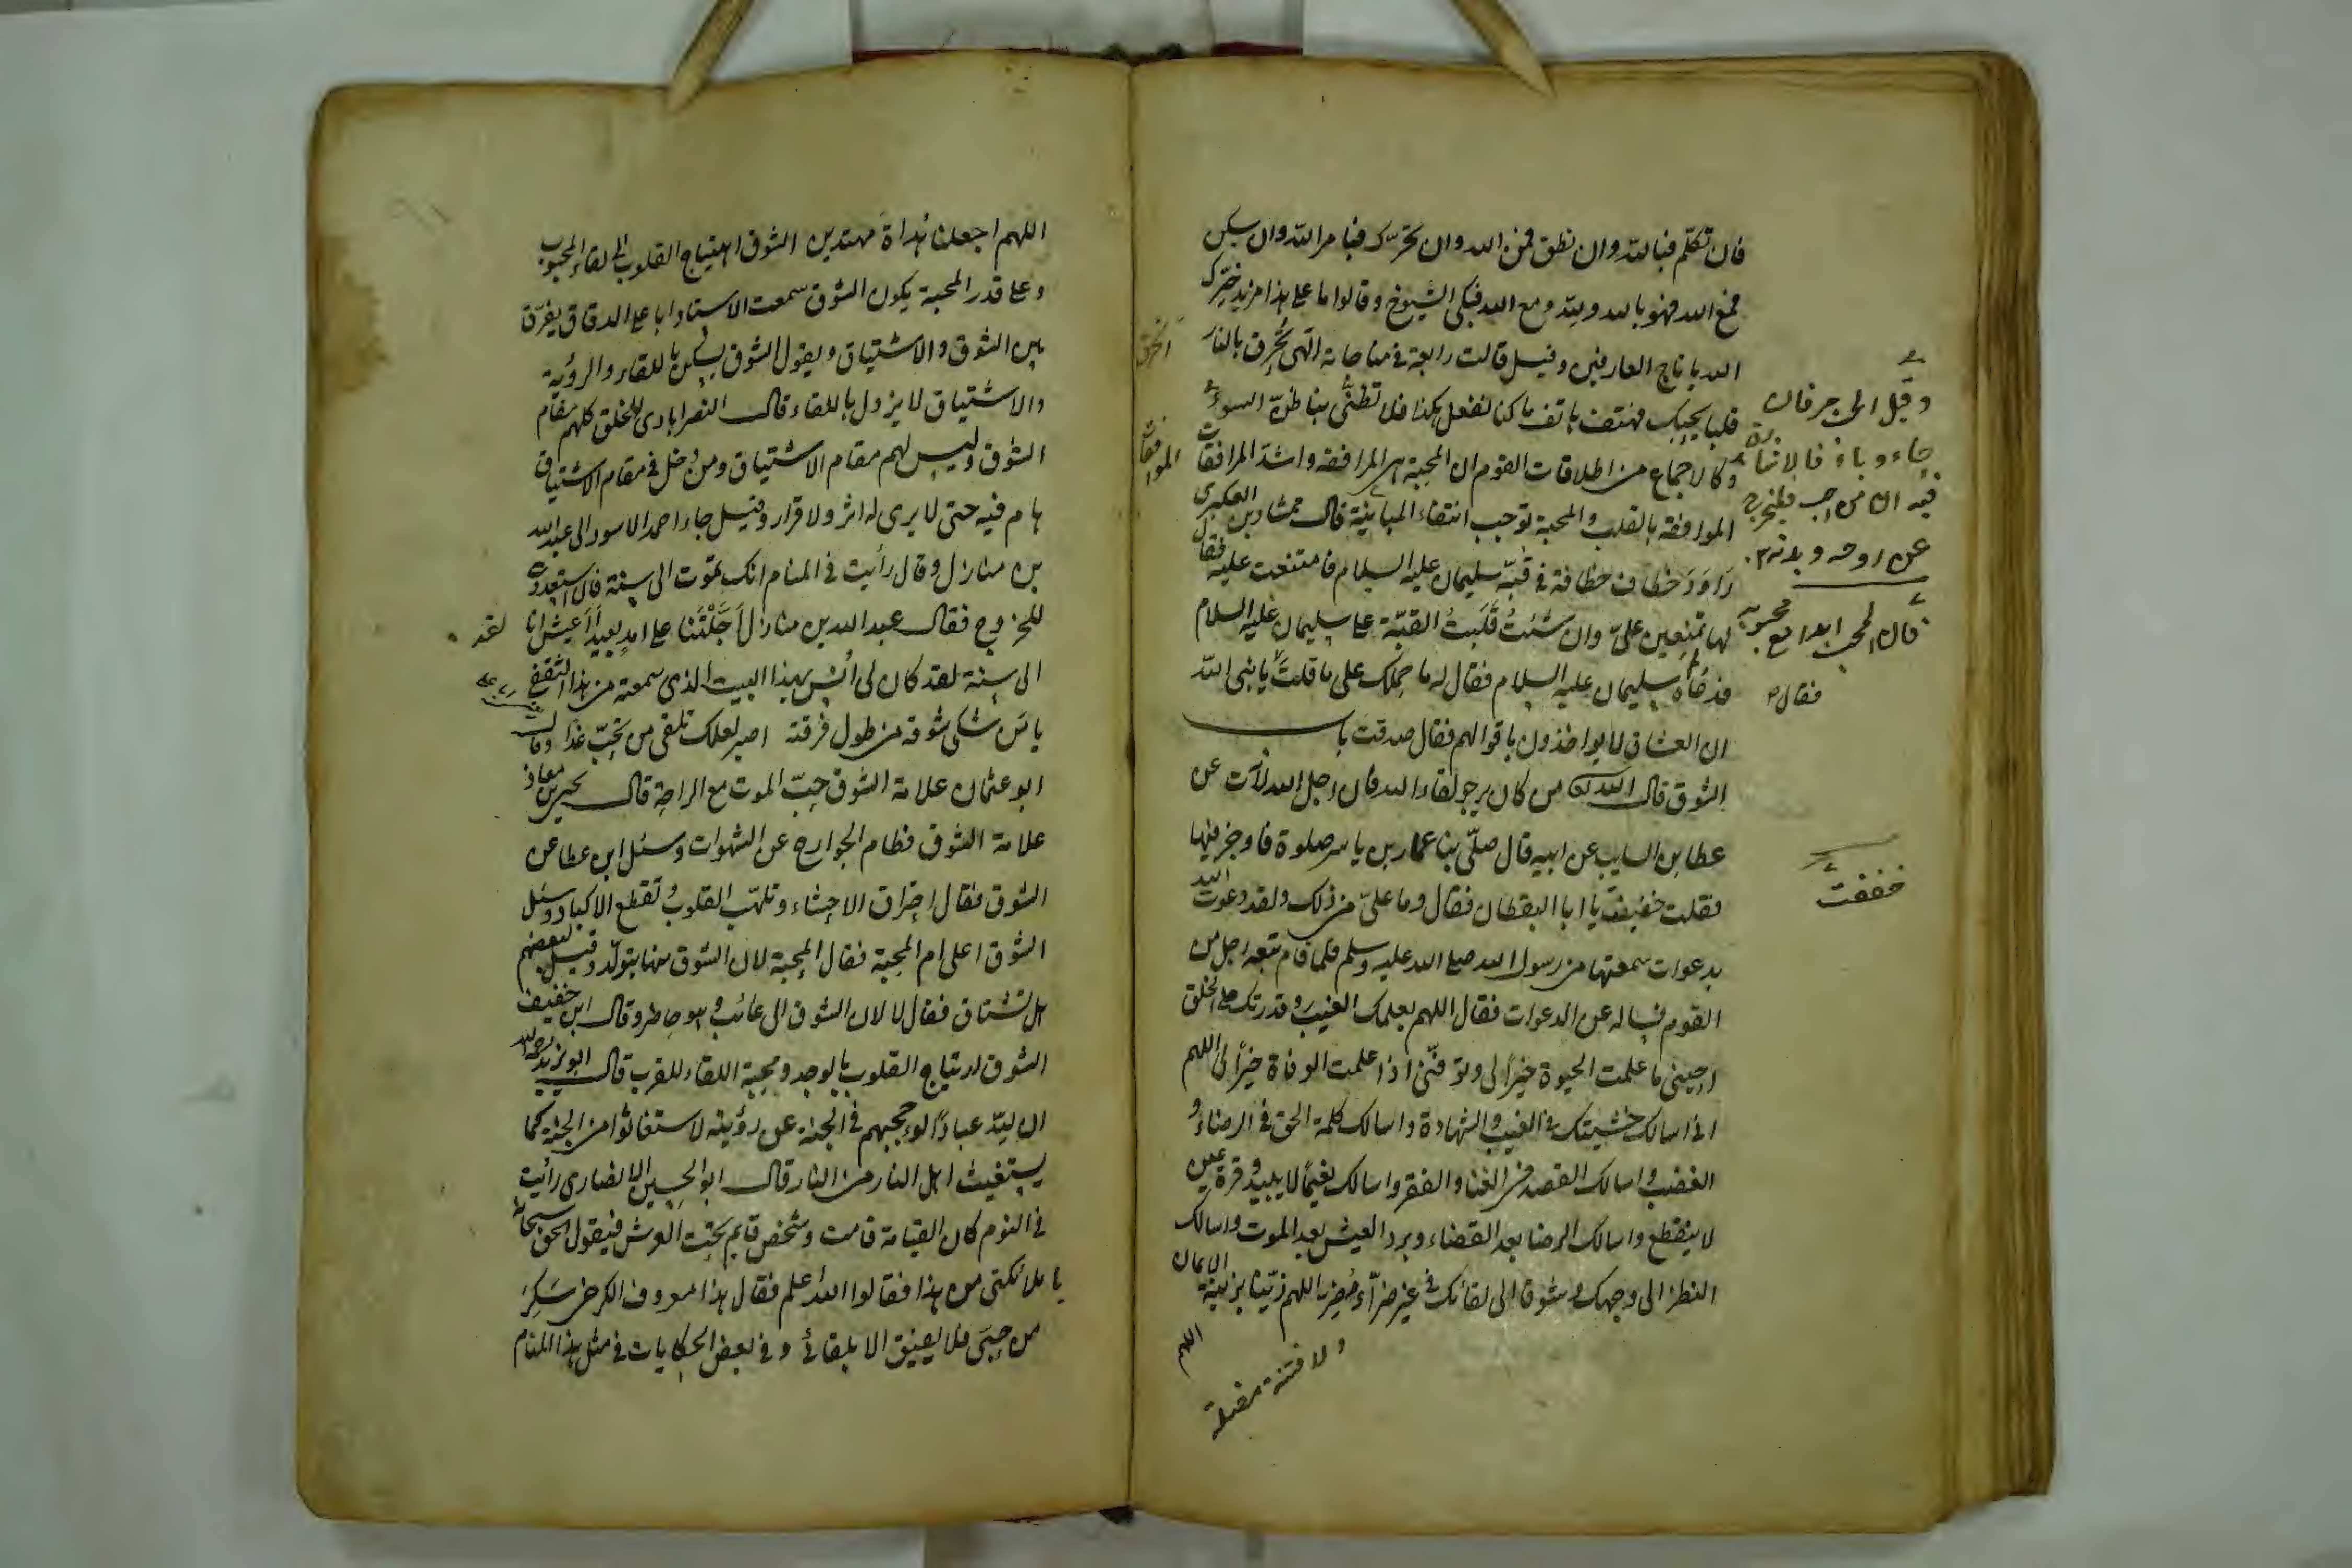 فان تكلم فبالله وان نطق فمن الله وان تحرّك فبامر الله وان سكن
فمع الله فهو بالله ولله ومع الله فبكى الشيوخ وقالوا ما على هذا مزيد جبرك
الله يا تاج العارفين وقيل قالت رابعة في مناجاته الهى تُحرِق بالنار
قلبا يحبك فهتف هاتف ما كنا نفعل هكذا فلا تظنّى بنا ظنّ السوء
وكالاجماع من اطلاقات القوم ان المحبة هى الموافقة واشدّ الموافقات
الموافقة بالقلب والمحبة توجب انتفاء المباينة قال ممشاد بن العكبرى
رَاوَدَ خطاف خطافة في قبّة سليمان عليه السلام فامتنعت عليه فقال
لها تمتنعين علىّ وان شئتُ قَلَبتُ القبّة على سليمان عليه السلام
فدعاه سليمان عليه السلام فقال له ما حملك على ما قلت يا نبى الله
ان العشاق لا يواخذون باقوالهم فقال صدقت باب
الشوق قال الله من كان يرجو لقاء الله فان اجل الله لآت عن
عطا بن السايب عن ابيه قال صلّى بنا عمار بن ياسر صلوة فاوجز فيها
فقلت خفيفت يا ابا اليقظان فقال وما علىّ من ذلك ولقد دعوت الله
بدعوات سمعتها من رسول الله صلى الله عليه وسلم فلما قام تبعه رجل من
القوم فساله عن الدعوات فقال اللهم بعلمك الغيب وقدرتك على الخلق
احيينى ما علمت الحيوة خيراً لى وتوفّنى اذا علمت الوفاة خيراً لى اللهم
انى اسالك خشيتك في الغيب والشهادة واسالك كلمة الحق في الرضاء و
الغضب واسالك القصد في الغنا والفقر واسالك نعيماً لا يبيد وقرة عين
لا ينقطع واسالك الرضا بعد القضاء وبرد العيش بعد الموت واسالك
النظر الى وجهك وشوقا الى لقائك في غير ضرّاء مُضِرة اللهم زيّنا بزينة الايمان
اللهم
ولا فتنة مضلة
الحرق
الموافقات
وقيل الحب حرفان
حاء وباء فالاشارة
فيه ان من احب فليخرج
عن روحه وبدنه
قال المحب ابدا مع محبوبه
فقال
خففت
اللهم اجعلنا هُداة مهتدين الشوق اهتياج القلوب الى لقاء المحبوب
وعلى قدر المحبة يكون الشوق سمعت الاستاد ابا على الدقاق يفرّق
بين الشوق والاشتياق ويقول الشوق يسكن باللقاء والرؤية
والاشتياق لا يزول باللقاء قال النصرابادى للخلق كلهم مقام
الشوق وليس لهم مقام الاشتياق ومن دخل في مقام الاشتياق
هام فيه حتى لا يرى له اثر ولا قرار وقيل جاء احمد الاسود الى عبد الله
بن منازل وقال رأيت في المنام انك تموت الى سنة فان استعددت
للخروج فقال عبد الله بن منازل اَجَّلْتَنا على امدٍ بعيد أَأَعيش انا
الى سنة لقد كان لى اُنْس بهذا البيت الذى سمعته من هذا الثقفى
يا مَن شكى شوقه من طول فرقته اصبر لعلك تلقى من تحبّ غدا وقال
ابو عثمان علامة الشوق حبّ الموت مع الراحة قال يحيى بن معاذ
علامة الشوق فطام الجوارح عن الشهوات وسئل ابن عطا عن
الشوق فقال احتراق الاحشاء وتلهّب القلوب وتقطع الاكباد وسئل
الشوق اعلى ام المحبة فقال المحبة لان الشوق منها يتولّد وقيل لبعضهم
هل تشتاق فقال لا لان الشوق الى غائب وهو حاضر وقال ابن خفيف
الشوق ارتياح القلوب بالوجد ومحبة اللقاء للقرب قال ابو يزيد رحمه الله
ان لله عباداً لو حجبهم في الجنة عن رؤيته لاستغاثوا من الجنة كما
يستغيث اهل النار من النار قال ابو الحسين الانصارى رأيت
في النوم كان القيامة قامت وشخص قايم تحت العرش فيقول الحق سبحانه
يا ملائكتى من هذا فقالوا الله اعلم فقال هذا معروف الكرخى سَكِرَ
من حبى فلا يفيق الا بلقائى وفي بعض الحكايات في مثل هذا المنام
لقد